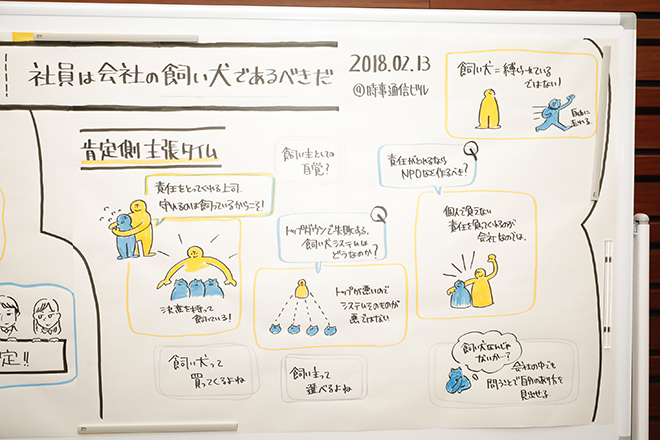 社員は会社の飼い犬であるべきだ
2018.02.13
@時事通信ビル
飼い犬=縛られている
ではない!
自由に
走れる
肯定側主張タイム
飼い主としての
自覚?
責任がとれるなら
NPOなど作るべき?
Q
責任をとってくれる上司
守れるのは飼っているからこそ!
決意を持って
飼っている!
トップダウンで失敗する。
飼い犬システムは
どうなのか?
Q
トップが悪いので
システムそのものが
悪ではない
個人で負えない
責任を負ってくれるのが
会社なのでは。
飼い犬って
買ってくるよね
飼い主って
選べるよね
飼い犬なんじゃ
ないか〜?
会社の中でも
問うことで自分のあり方を
見出せる
定!!